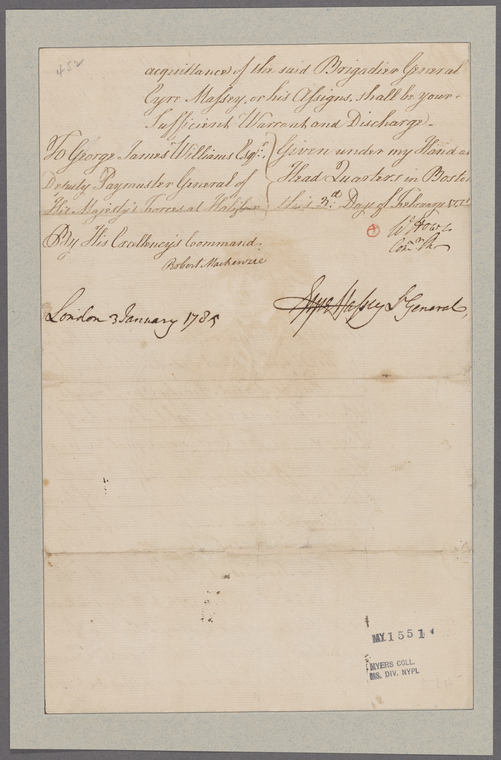 452
acquittance of the said Brigadier General
Eyre Massey, or his Assigns, shall be your
Sufficient Warrant and Discharge.
To George James Williams Esqr.
Deputy Paymaster General of
His Majesty's Forces at Halifax
Given under my Hand at
Head Quarters in Boston
this 3d. Day of February
By His Excellency's Command.
Robert Mackenzie
Wm. Howe
London 3 January 1785
Eyre Massey Lt General
MY1551
MYERS COLL.
MS. DIV. NYPL